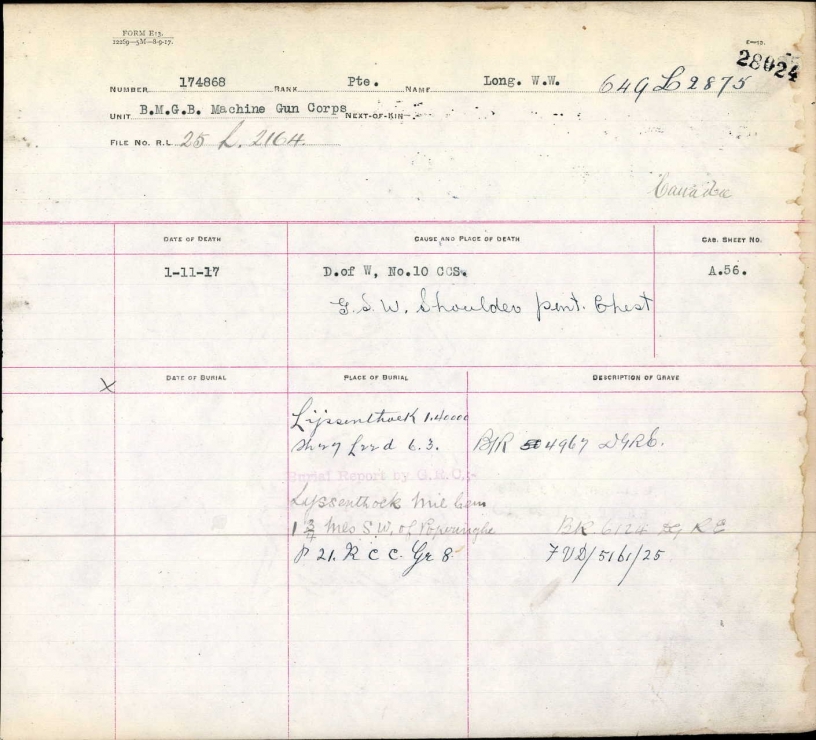 FORM E13.
12269—5M—8-9-17.
28024
NUMBER 174868 RANK Pte. NAME Long. W.W. 649 L 2875
UNIT B.M.G.B. Machine Gun Corps NEXT-OF-KIN
FILE NO. R.L. 25 L. 2164.
DATE OF DEATH CAUSE AND PLACE OF DEATH CAS. SHEET NO.
1-11-17 D.of W, No.10 CCS. A.56.
G.S.W. Shoulder pent. Chest
X DATE OF BURIAL PLACE OF BURIAL DESCRIPTION OF GRAVE
Lijssenthoek 1.40000
Sh 27 6.3. B/R 4967 DGRE.
Burial Report by G.R.C.:-
Lyssenthoek Mil Cem
1 3/4 Mls S.W. of Poperinghe BR. 6124 DG RE
P 21. R C C. Gr 8. FVD/5161/25